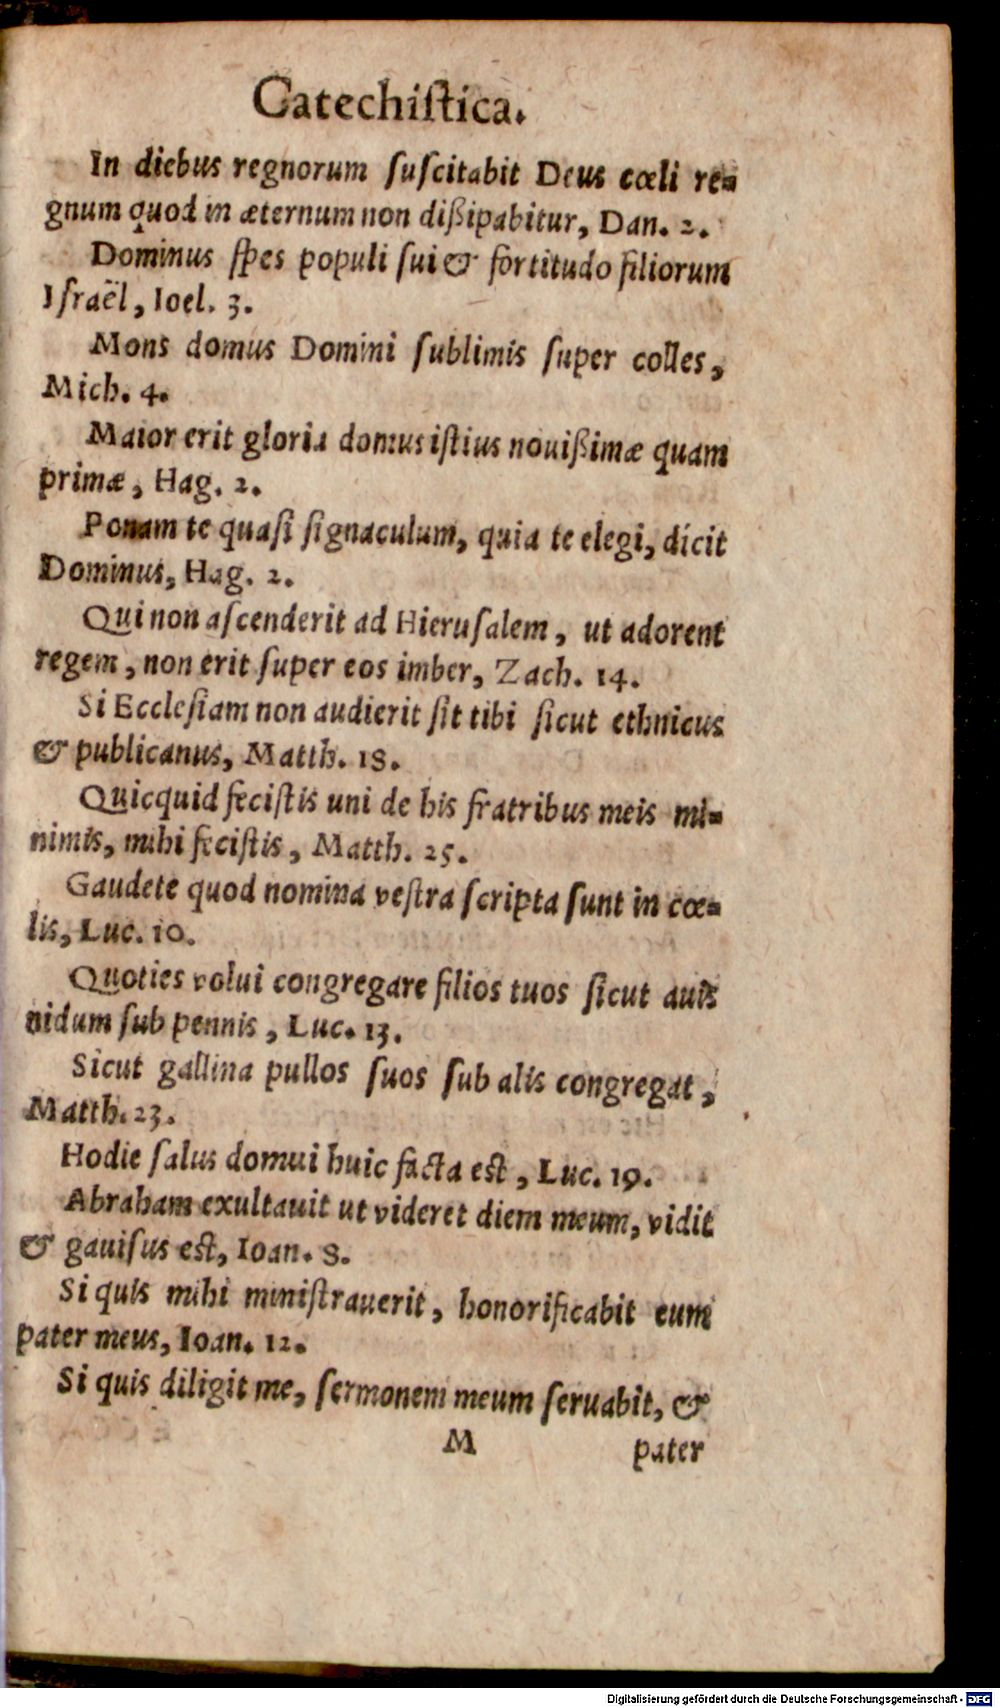 Catechiſtica.
In diebus regnorum ſuſcitabit Deus cœli re-
gnum quod in æternum non dißipabitur, Dan. 2.
Dominus ſpes populi ſui & fortitudo filiorum
Iſraël, Ioel. 3.
Mons domus Domini ſublimis ſuper colles,
Mich. 4.
Maior erit gloria domus iſtius nouißimæ quam
primæ, Hag. 2.
Ponam te quaſi ſignaculum, quia te elegi, dicit
Dominus, Hag. 2.
Qui non aſcenderit ad Hieruſalem, ut adorent
regem, non erit ſuper eos imber, Zach. 14.
Si Eccleſiam non audierit ſit tibi ſicut ethnicus
& publicanus, Matth. 18.
Quicquid feciſtis uni de his fratribus meis mi-
nimis, mihi feciſtis, Matth. 25.
Gaudete quod nomina veſtra ſcripta ſunt in cœ-
lis, Luc. 10.
Quoties volui congregare filios tuos ſicut auis
nidum ſub pennis, Luc. 13.
Sicut gallina pullos ſuos ſub alis congregat,
Matth. 23.
Hodie ſalus domui huic facta eſt, Luc. 19.
Abraham exultauit ut videret diem meum, vidit
& gauiſus eſt, Ioan. 8.
Si quis mihi miniſtrauerit, honorificabit eum
pater meus, Ioan. 12.
Si quis diligit me, ſermonem meum ſeruabit, &
M pater
Digitalisierung gefördert durch die Deutsche Forschungsgemeinschaft - DFG